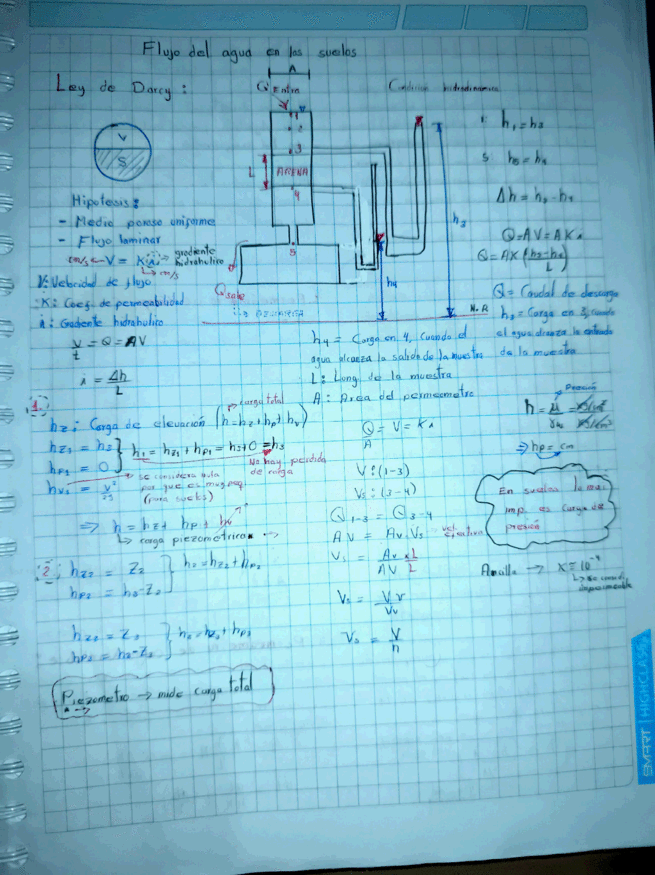 Flujo del agua en los suelos
Ley de Darcy:
A
Q entra
Condición hidrodinámica
V
S
1
2
3
ARENA
4
L
5
h3
h4
Q sale
N.R
Hipotesis:
- Medio poroso uniforme
- Flujo laminar
m/s ← V = K i → gradiente hidraulico
↳ m/s
V: Velocidad de flujo
K: Coef. de permeabilidad
i: Gradiente hidraulico
V/t = Q = AV
i = Δh/L
1: h1 = h3
5 h5 = h4
Δh = h3 - h4
Q = AV = AKi
Q = AK (h3-h4/L)
Q = Caudal de descarga
h3 = Carga en 3, cuando
el agua alcanza la entrada
de la muestra
h4 = Carga en 4, Cuando el
agua alcanza la salida de la muestra
L: Long. de la muestra
A: Area del permeametro
1.
hz: Carga de elevación (h = hz + hp + hv)
→ carga total
hz1 = h3
hp1 = 0
h1 = hz1 + hp1 = h3 + 0 = h3
No hay perdida
de carga
hv1 = V²/2g
→ se considera nula
por que es muy peq.
(para suelos)
⇒ h = hz + hp + hv
↳ carga piezométrica
2. hz2 = Z2
hp2 = h2-Z2
h2 = hz2 + hp2
hz3 = Z3
hp3 = h3-Z3
h3 = hz3 + hp3
Piezometro → mide carga total
Q/A = V = Ki
V: (1-3)
Vs: (3-4)
Q1-3 = Q3-4
AV = Av.Vs → vel. efectiva
Vs = V/n
Presión
⇒ hp = cm
En suelos la mas
imp. es carga de
presión
Arcilla → K = 10
↳ se consid.
impermeable
HIGHCLASS